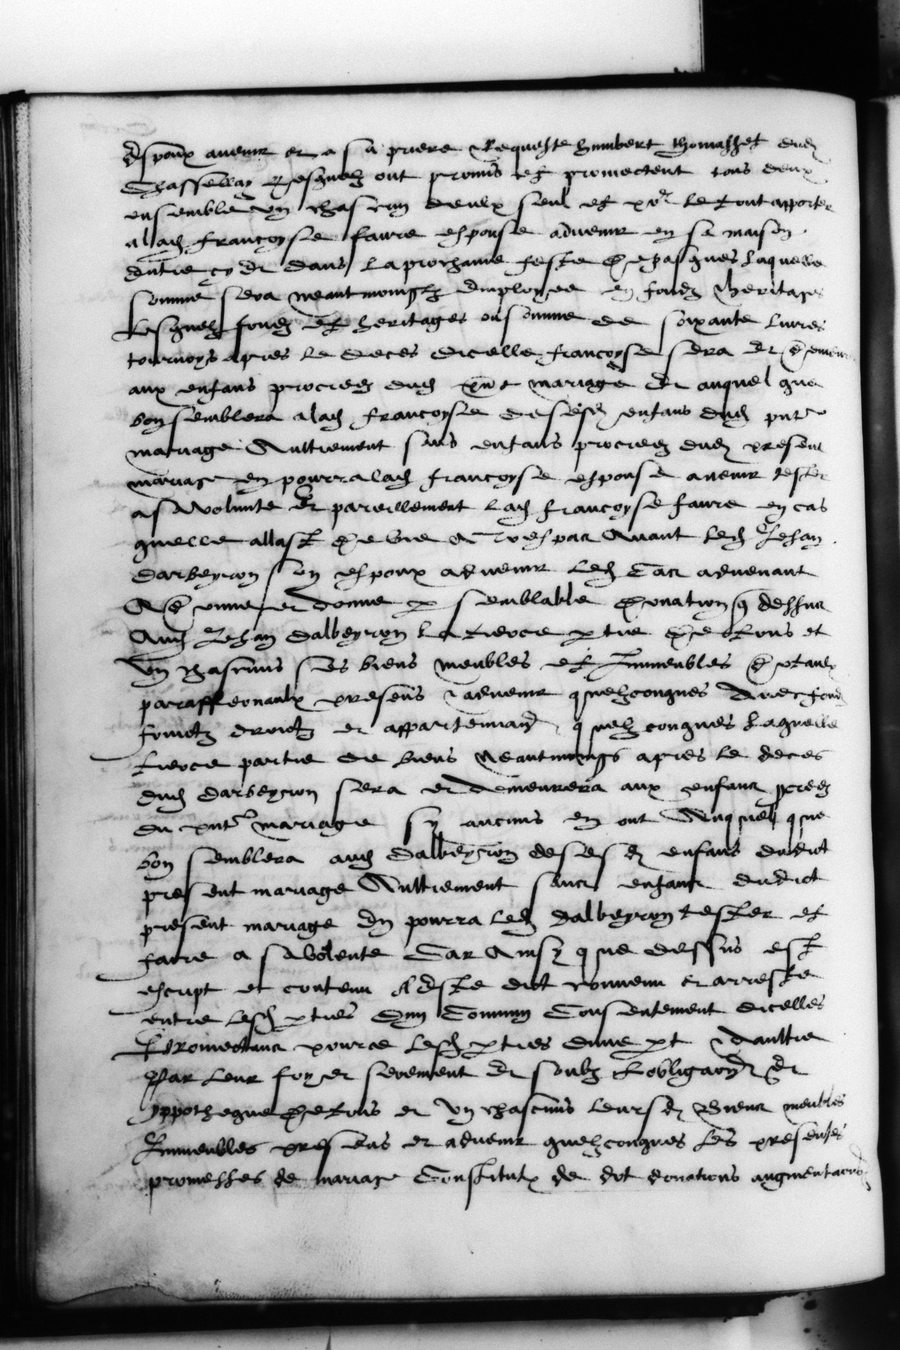 d'espoux avenir et a sa priere Requeste humbert thomasset dud
Chasselay Lesquelz ont promis et promectent tous deux
ensemble un chascun deulx seul et pour le tout apporter
a lad francoyse faure espouse advenir en sa maison
dentre cy et dans la prochaine feste de pasques laquelle
somme sera neantmoingtz employee en fondz heritages
Lesquelz fondz et heritages ou somme de soixante livres
tournoys apres le deces dicelle francoyse sera et demeurera
aux enfans procreez dud pnt mariage et auquel que
bon semblera a lad francoyse de sesd enfans dud pnt
mariage Aultrement sans enfans procreez dud present
mariage en pourra lad francoyse espouse avenir tester
a sa volunte Et pareillement lad francoyse faure en cas
quelle allast de vie a trespas Avant led Jehan
Darbeyron son espoux advenir led Cas advenant
A donne et donne par semblable donation que dessus
Aud Jehan Dalbeyron la tierce ptie de tous et
un chascuns ses biens meubles et Immeubles dotaulx
parraffernaulx presens et advenir quelzcongnes Avec fondz
fruictz droictz et appartenances quelzcongnes Laquelle
tierce partie de biens Neantmoings apres le deces
dud Darbeyron sera et demeurera aux enfans procreez
du pnt mariage sy aucuns en ont Auquel que
bon semblera aud Dalbeyron de sesd enfans dudict
present mariage Aultrement sans enfans dudict
present mariage En pourra led Dalbeyron tester et
faire a sa volente Car Ainsy que dessus est
escript et contenu A este dict convenu et arreste
entre lesd pties Dun Commun Consentement dicelles
Promectans pource lesd pties dune pt et daultre
Par leur foy et serement et soubz l'obligation et
yppotheque de tous et Un chascuns leursd Biens meubles
Immeubles presens et advenir quelzcongnes les presentes
promesses de mariage Constitut de dot donations augmentation